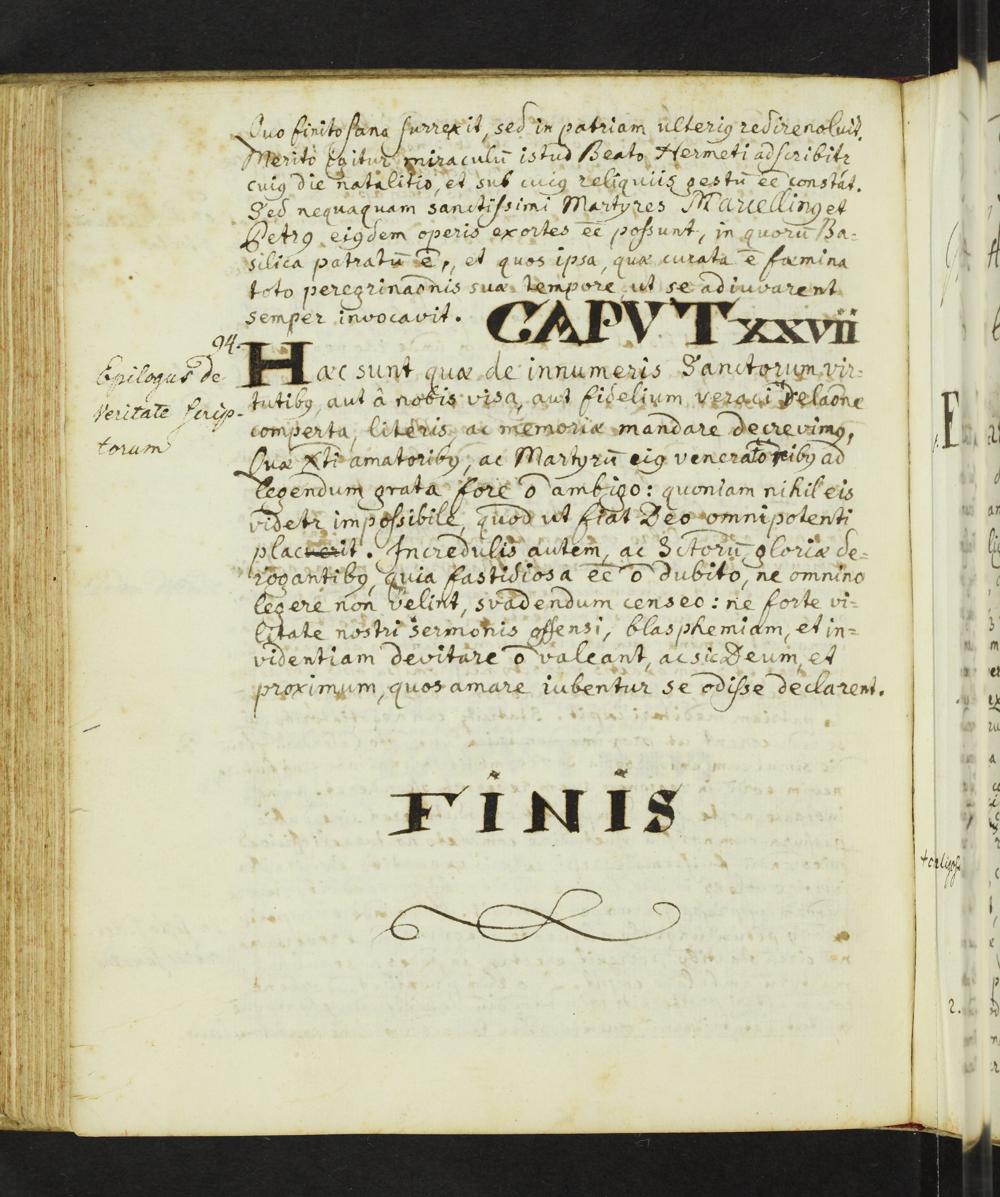 Quo finito sana surrexit, sed in patriam ulteriꝰ redire noluit.
Meritò igitur miraculū istud Beato Hermeti adscribitr
cuiꝰ die natalitio, et sub cuiꝰ reliquiis gestū eē constat.
Sed nequaquam sanctissimi Martyres Marcellinꝰ et
Petrꝰ eiꝰdem operis exortes eē possunt, in quorū Ba=
silica patratū ē, et quos ipsa, quæ curata ē fœmina
toto peregrinaōnis suæ tempore, ut se adiuvarent
semper invocavit.
CAPVT xxvii
94.
Epilogus de
Veritate scrip-
torum
Hæc sunt quæ de innumeris Sanctorum vir=
tutibꝰ, aut â nobis visa, aut fidelium veraci relaōne
comperta, literis ac memoriæ mandare decrevimꝰ,
Quæ Xti amatoribꝰ, ac Martyrū eiꝰ veneratoribꝰ ad
legendum grata fore ō ambigo: quoniam nihil eis
videtr impossibile, quod ut fiat Deo omnipotenti
placuerit. Incredulis autem, ac Sctorū gloriæ de=
rogantibꝰ, quia fastidiosa eē ō dubito, ne omnino
legere non velint, svadendum censeo: ne forte vi=
litate nostri sermonis offensi, blasphemiam, et in=
videntiam devitare ō valeant, ac sic Deum, et
proximum, quos amare iubentur se odisse declarent.
FINIS
2.